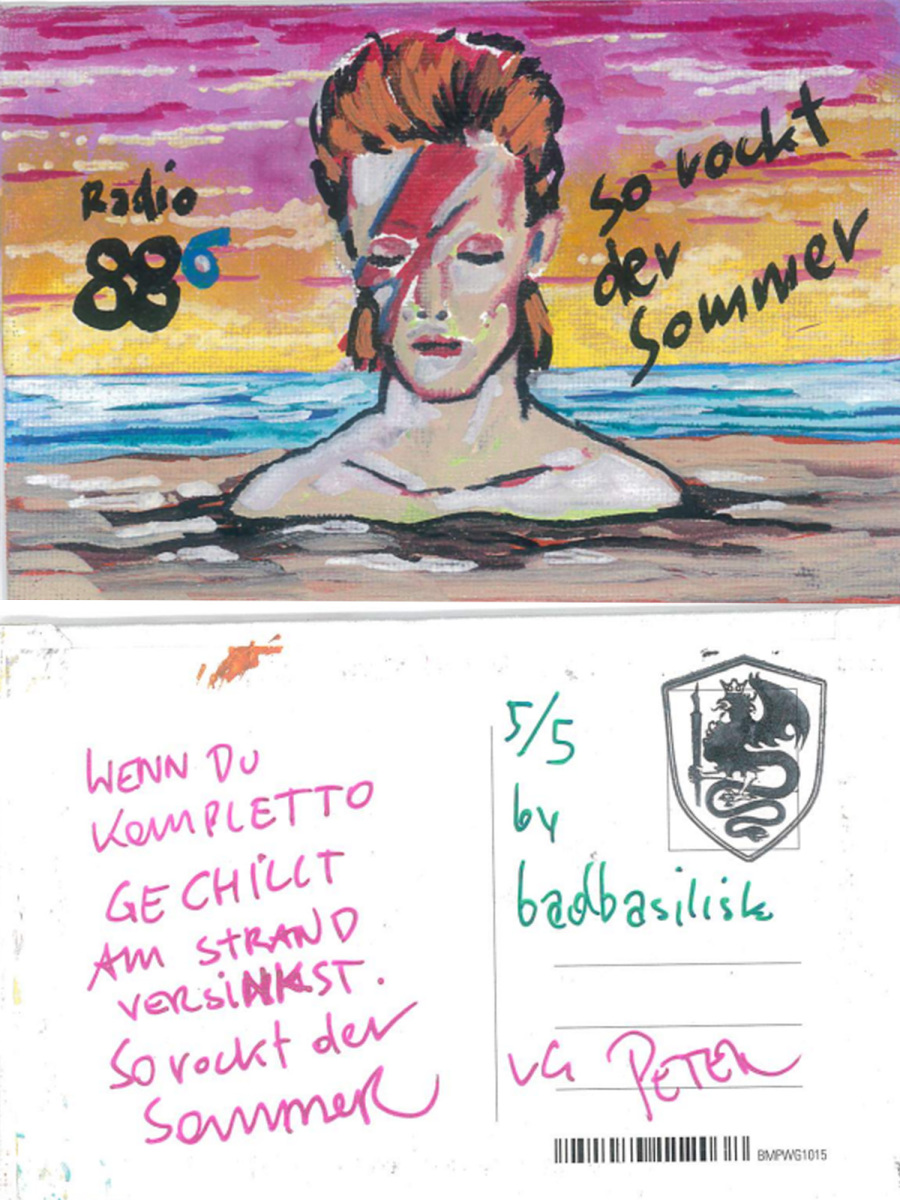 Radio
88 6
So rockt
der
Sommer
WENN DU
KOMPLETTO
GECHILLT
AM STRAND
VERSINKST.
So rockt der
Sommer
5/5
by
badbasilisk
VG PETER
BMPWG1015